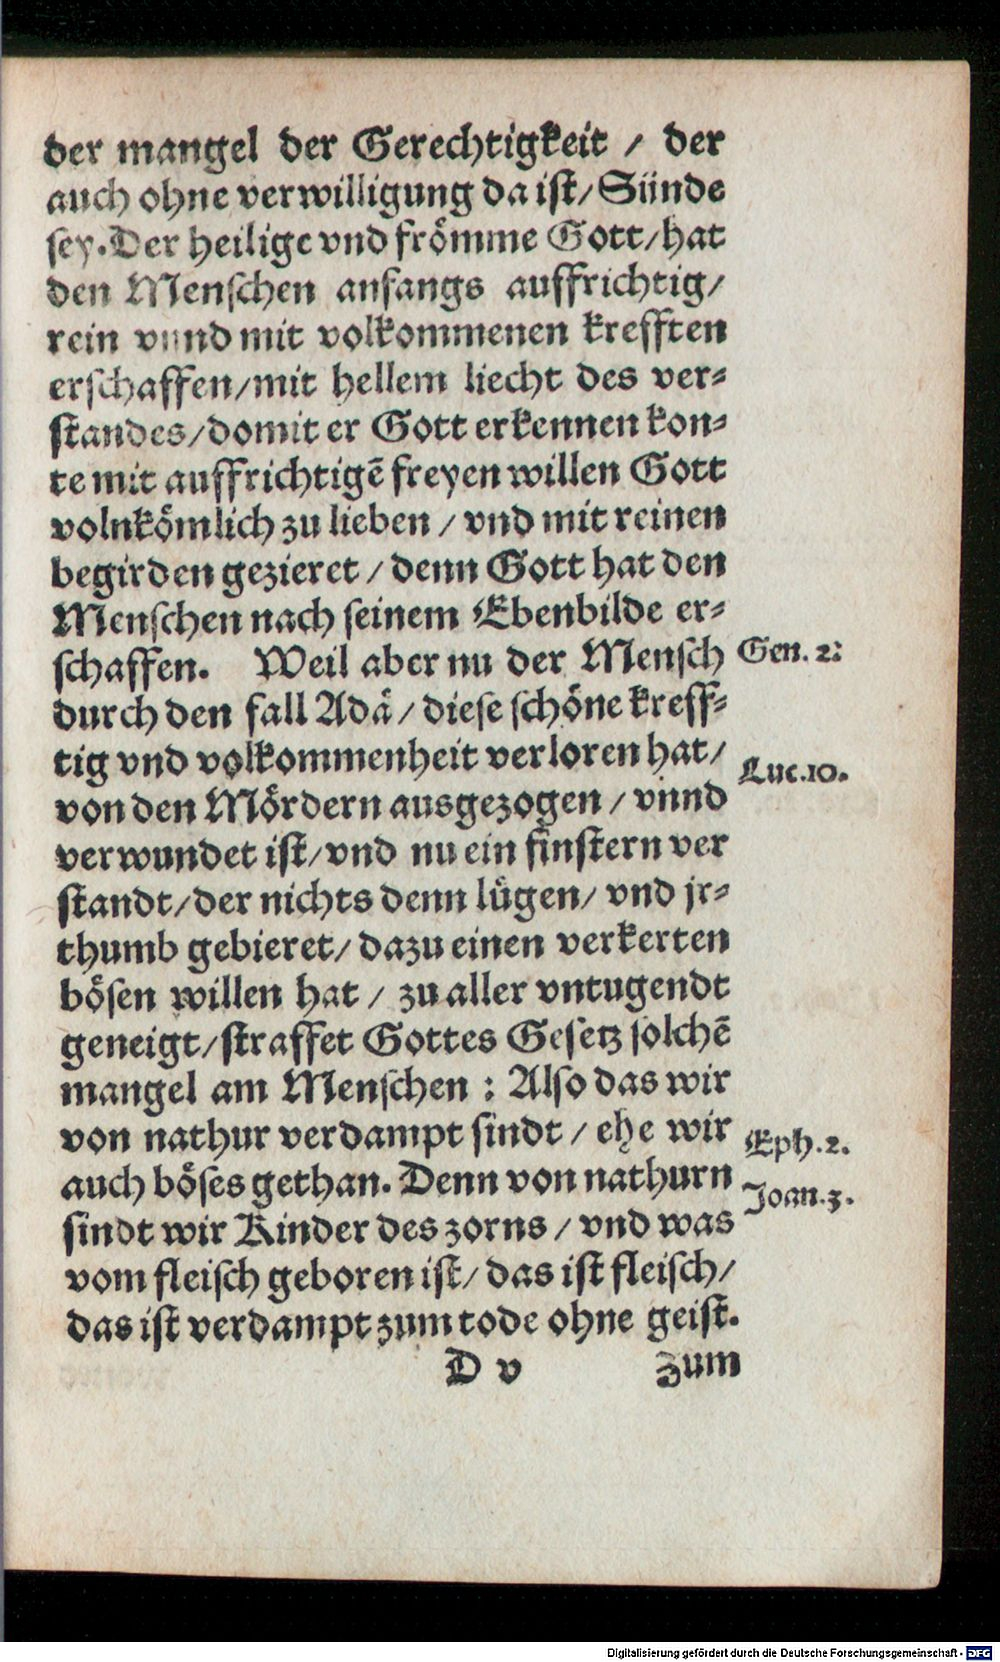 der mangel der Gerechtigkeit / der
auch ohne verwilligung da ist / Sünde
sey. Der heilige vnd frömme Gott / hat
den Menschen anfangs auffrichtig /
rein vnnd mit volkommenen krefften
erschaffen / mit hellem liecht des ver-
standes / domit er Gott erkennen kon-
te mit auffrichtigē freyen willen Gott
volnkömlich zu lieben / vnd mit reinen
begirden gezieret / denn Gott hat den
Menschen nach seinem Ebenbilde er-
schaffen. Weil aber nu der Mensch Gen. 2:
durch den fall Adä / diese schöne kreff-
tig vnd volkommenheit verloren hat / Luc. 10.
von den Mördern ausgezogen / vnnd
verwundet ist / vnd nu ein finstern ver
standt / der nichts denn lügen / vnd jr-
thumb gebieret / dazu einen verkerten
bösen willen hat / zu aller vntugendt
geneigt / straffet Gottes Gesetz solchē
mangel am Menschen : Also das wir
von nathur verdampt sindt / ehe wir Eph. 2.
auch böses gethan. Denn von nathurn Joan. 3.
sindt wir Kinder des zorns / vnd was
vom fleisch geboren ist / das ist fleisch /
das ist verdampt zum tode ohne geist.
D v zum
Digitalisierung gefördert durch die Deutsche Forschungsgemeinschaft - DFG